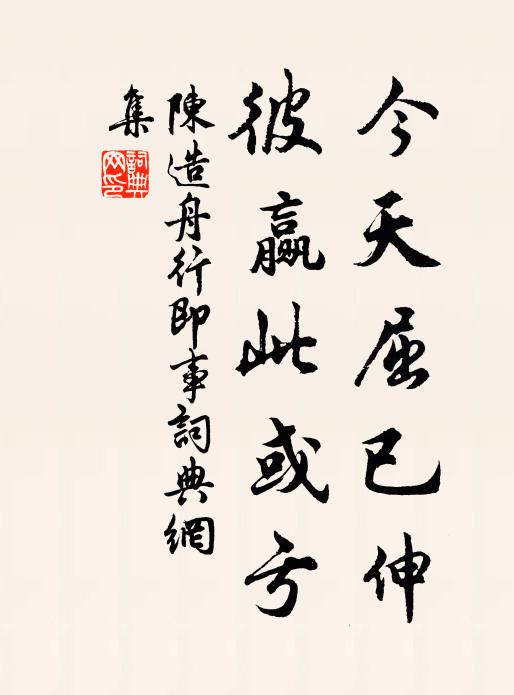 今天屈已伸
彼赢此或亏
陳造舟行即事詞典網
集
詞典
网印